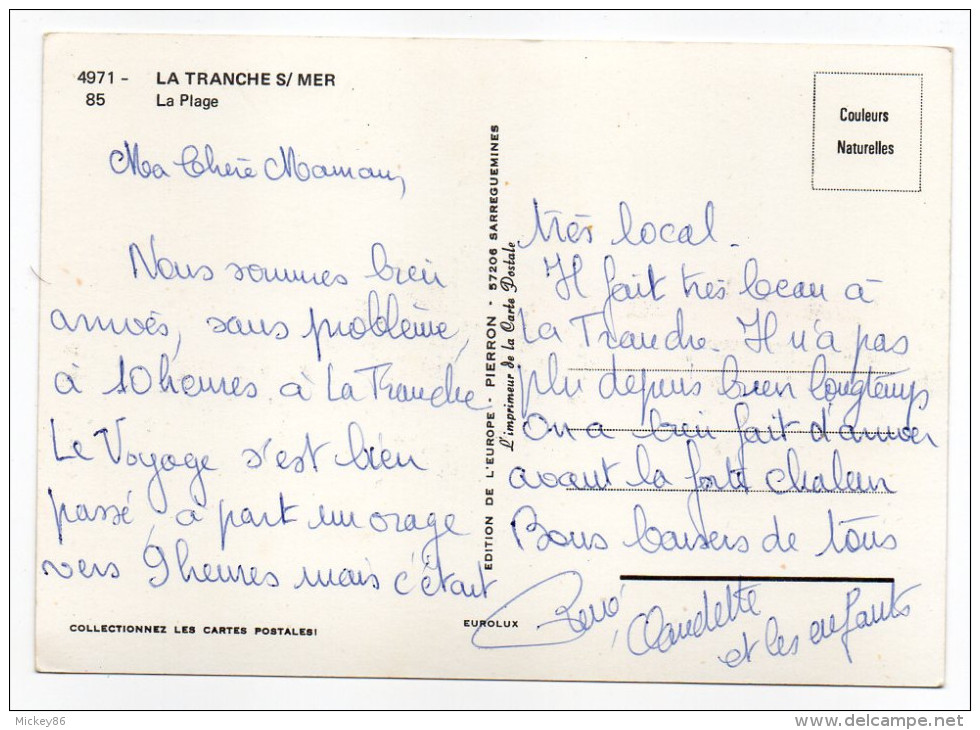 4971 - LA TRANCHE S/ MER
85 La Plage
Ma Chère Maman,
Nous sommes bien
arrivés, sans problème,
à 10 heures à La Tranche
Le Voyage s'est bien
passé, à part un orage
vers 9 heures mais c'était
COLLECTIONNEZ LES CARTES POSTALES!
EDITION DE L'EUROPE - PIERRON - 57206 SARREGUEMINES
L'imprimeur de la Carte Postale
EUROLUX
Couleurs
Naturelles
très local.
Il fait très beau à
La Tranche. Il n'a pas
plu depuis bien longtemps
On a bien fait d'arriver
avant la forte chaleur
Bons baisers de tous
René, Claudette
et les enfants
Mickey86
www.delcampe.net